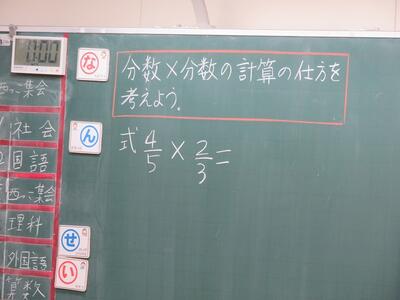 11:00
な
ん
せ
い
分数×分数の計算の仕方を
考えよう。
式 4/5 × 2/3 =
社会
2国語
理科
外国語
算数